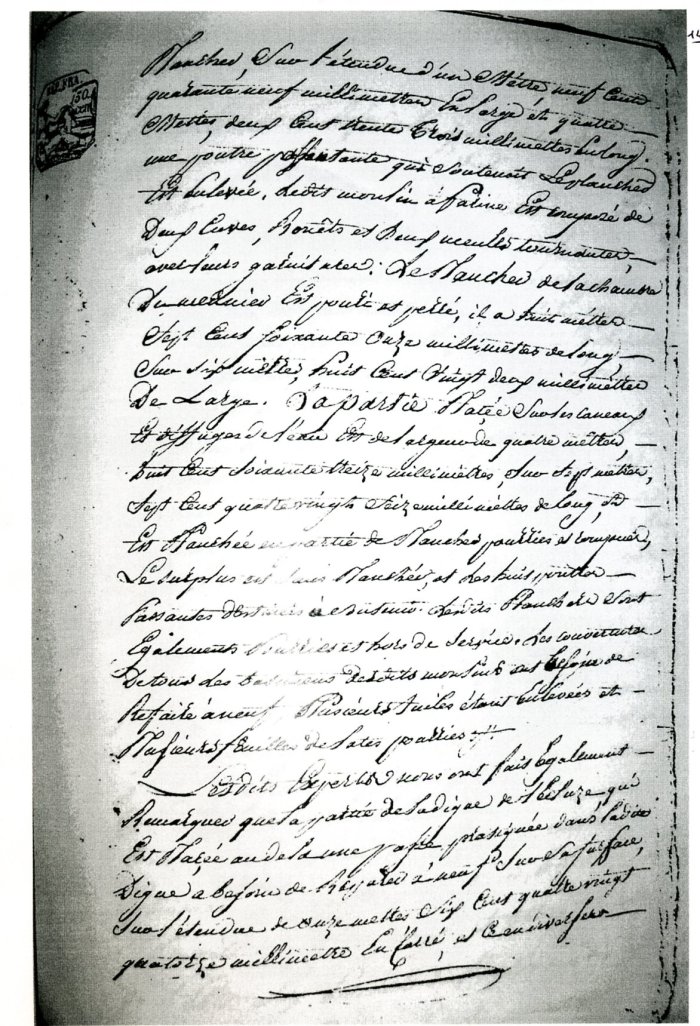 14
Plancher, Sur l'étendue d'un Mètre neuf Cent
quarante neuf millimettres En large et quatre
Mettres, deux Cent trente trois millimettres En long.
une poutre passante qui Soutenoit Le plancher
Est Enlevée. Ledit moulin à farine Est composé de
Deux Cuves, Rouëts et Deux meules tournantes,
avec leurs garnitures. Le Plancher de la chambre
Du meunier Est pouri et percé, il a huit mètres
Sept Cent soixante Onze millimètres de long,
Sur Six mètres, huit Cent Vingt deux millimètres
De Large. La partie Placée Sur les canaux
Et de l'eau Est de largeur de quatre mètres,
huit Cent Soixante treize millimètres, Sur Sept mètres,
Sept Cent quatre vingts Seize millimettres de long, Et
Est Planchée en partie de Planches pourries et rompues,
Le Surplus est Sans Plancher, et Les huit poutres
Passantes destinées à Soutenir Lesdits Planchers Sont
Egalement Pourries et hors de Service. Les couvertures
De tous Les batimens desdits moulins ont besoin de
Refaire à neuf, Plusieurs tuiles étant Enlevées et
Plusieurs feuilles de lates pourries.
Lesdits Experts nous ont fait Egalement
Remarquer que la partie de la digue de l'Ecluze qui
Est Placée au dela une passe pratiquée dans ladite
Digue a besoin de Réparer à neuf Sur Sa surface,
Sur l'étendue de onze mettres Six Cent quatre vingt
quatorze millimètres En Carré, et Ce en diverses